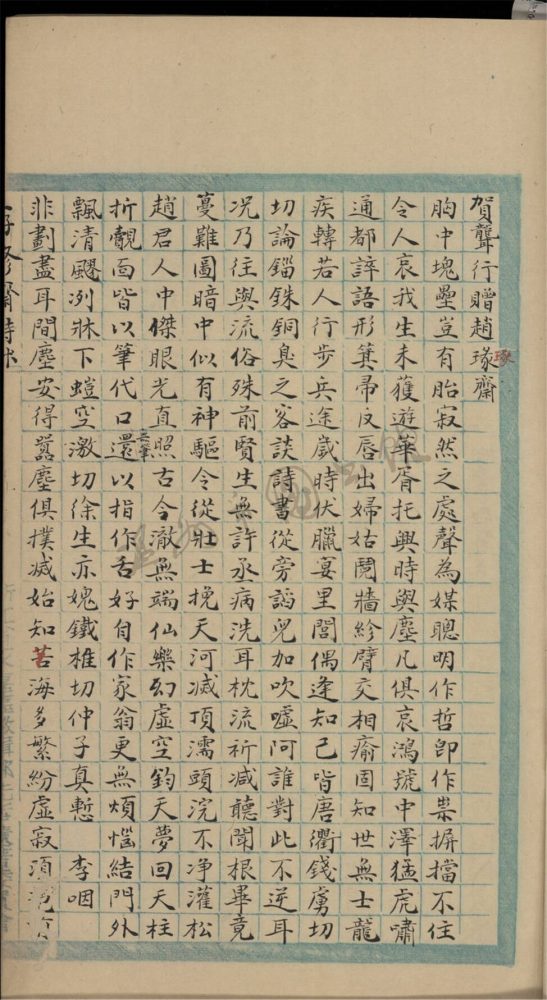 賀聾行贈趙琢齋
琢
胸中塊壘豈有胎寂然之處聲為媒聰明作哲卽作祟摒擋不住
令人哀我生未獲遊華胥托興時與塵凡俱哀鴻號中澤猛虎嘯
通都誶語形箕帚反唇出婦姑鬩牆紾臂交相瘉固知世無士龍
疾轉若人行步兵途歲時伏臘宴里閭偶逢知己皆唐衢錢虜切
切論錙銖銅臭之客談詩書從旁謟兒加吹噓阿誰對此不逆耳
况乃往與流俗殊前賢生無許丞病洗耳枕流祈減聽聞根畢竟
蔓難圖暗中似有神驅令從壯士挽天河滅頂濡頭浣不净灌松
趙君人中傑眼光直照古今澈無端仙樂幻虛空鈞天夢回天柱
折覿面皆以筆代口還以指作舌好自作家翁更無煩惱結門外
飄清飈冽牀下螘空激切徐生亦媿鐵椎切仲子真慙 李咽
非劃盡耳間塵安得囂塵俱撲滅始知苦海多繁紛虛寂須